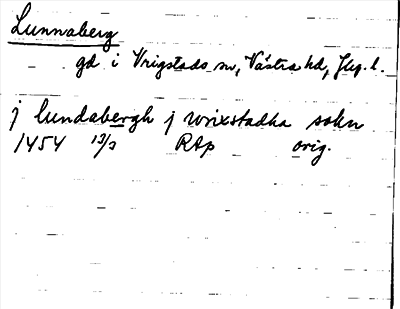 Lunnaberg
gd i Vrigstads sn, Västra hd, Jkp. l.
j lundabergh j wrixstadha sokn
1454 13/3 RAp orig.